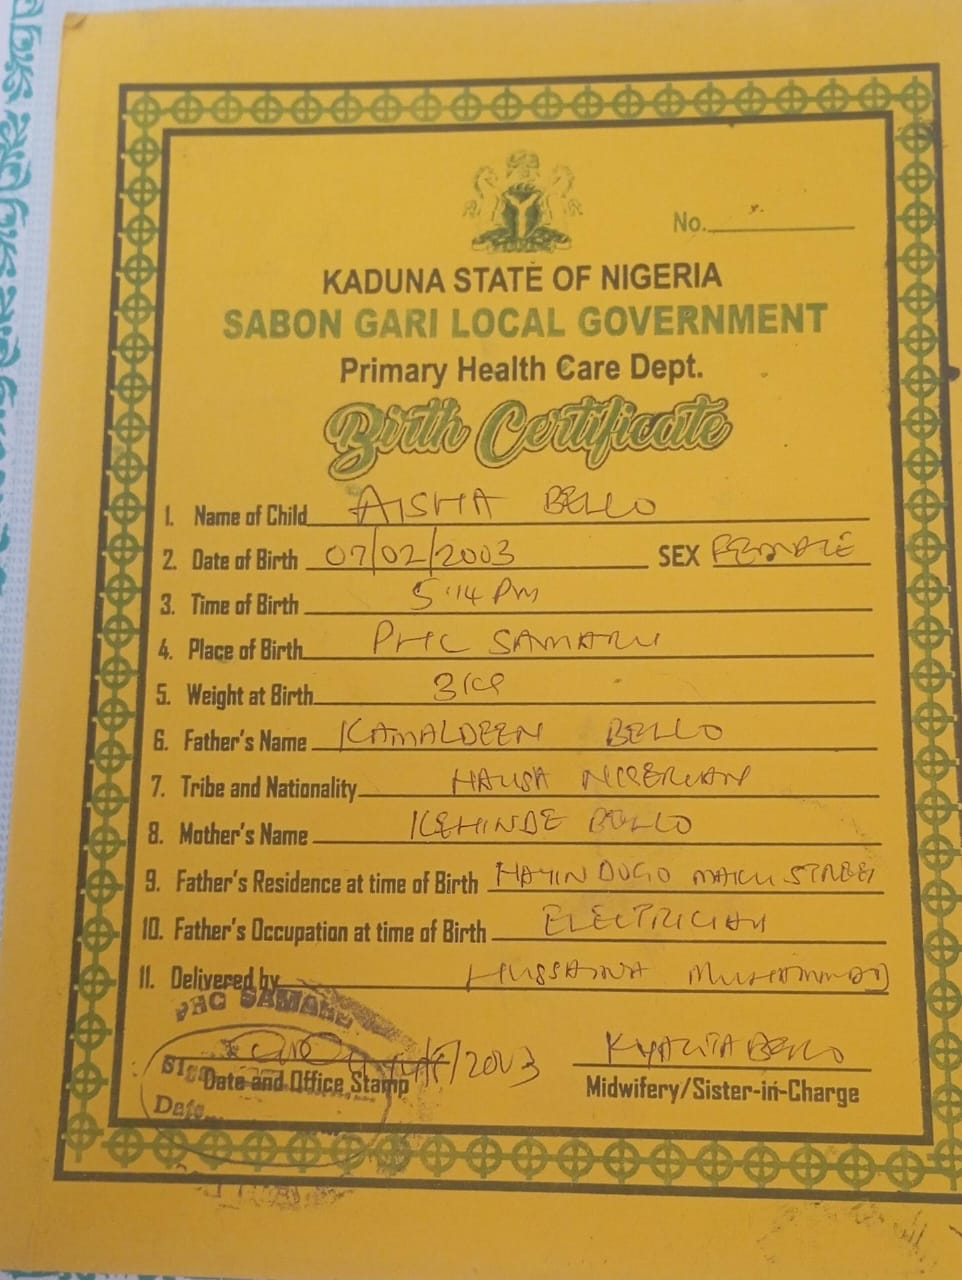 No.
KADUNA STATE OF NIGERIA
SABON GARI LOCAL GOVERNMENT
Primary Health Care Dept.
Birth Certificate
1. Name of Child AISHA BELLO
2. Date of Birth 07/02/2003 SEX FEMALE
3. Time of Birth 5:14 PM
4. Place of Birth PHC SAMARU
5. Weight at Birth 3kg
6. Father's Name KAMALDEEN BELLO
7. Tribe and Nationality HAUSA NIGERIAN
8. Mother's Name KEHINDE BELLO
9. Father's Residence at time of Birth HAYIN DOGO STREET
10. Father's Occupation at time of Birth ELECTRICIAN
11. Delivered by HUSSAINA MUHAMMAD
PHC SAMARU
/2003 BELLO
Date and Office Stamp Midwifery/Sister-in-Charge
Date